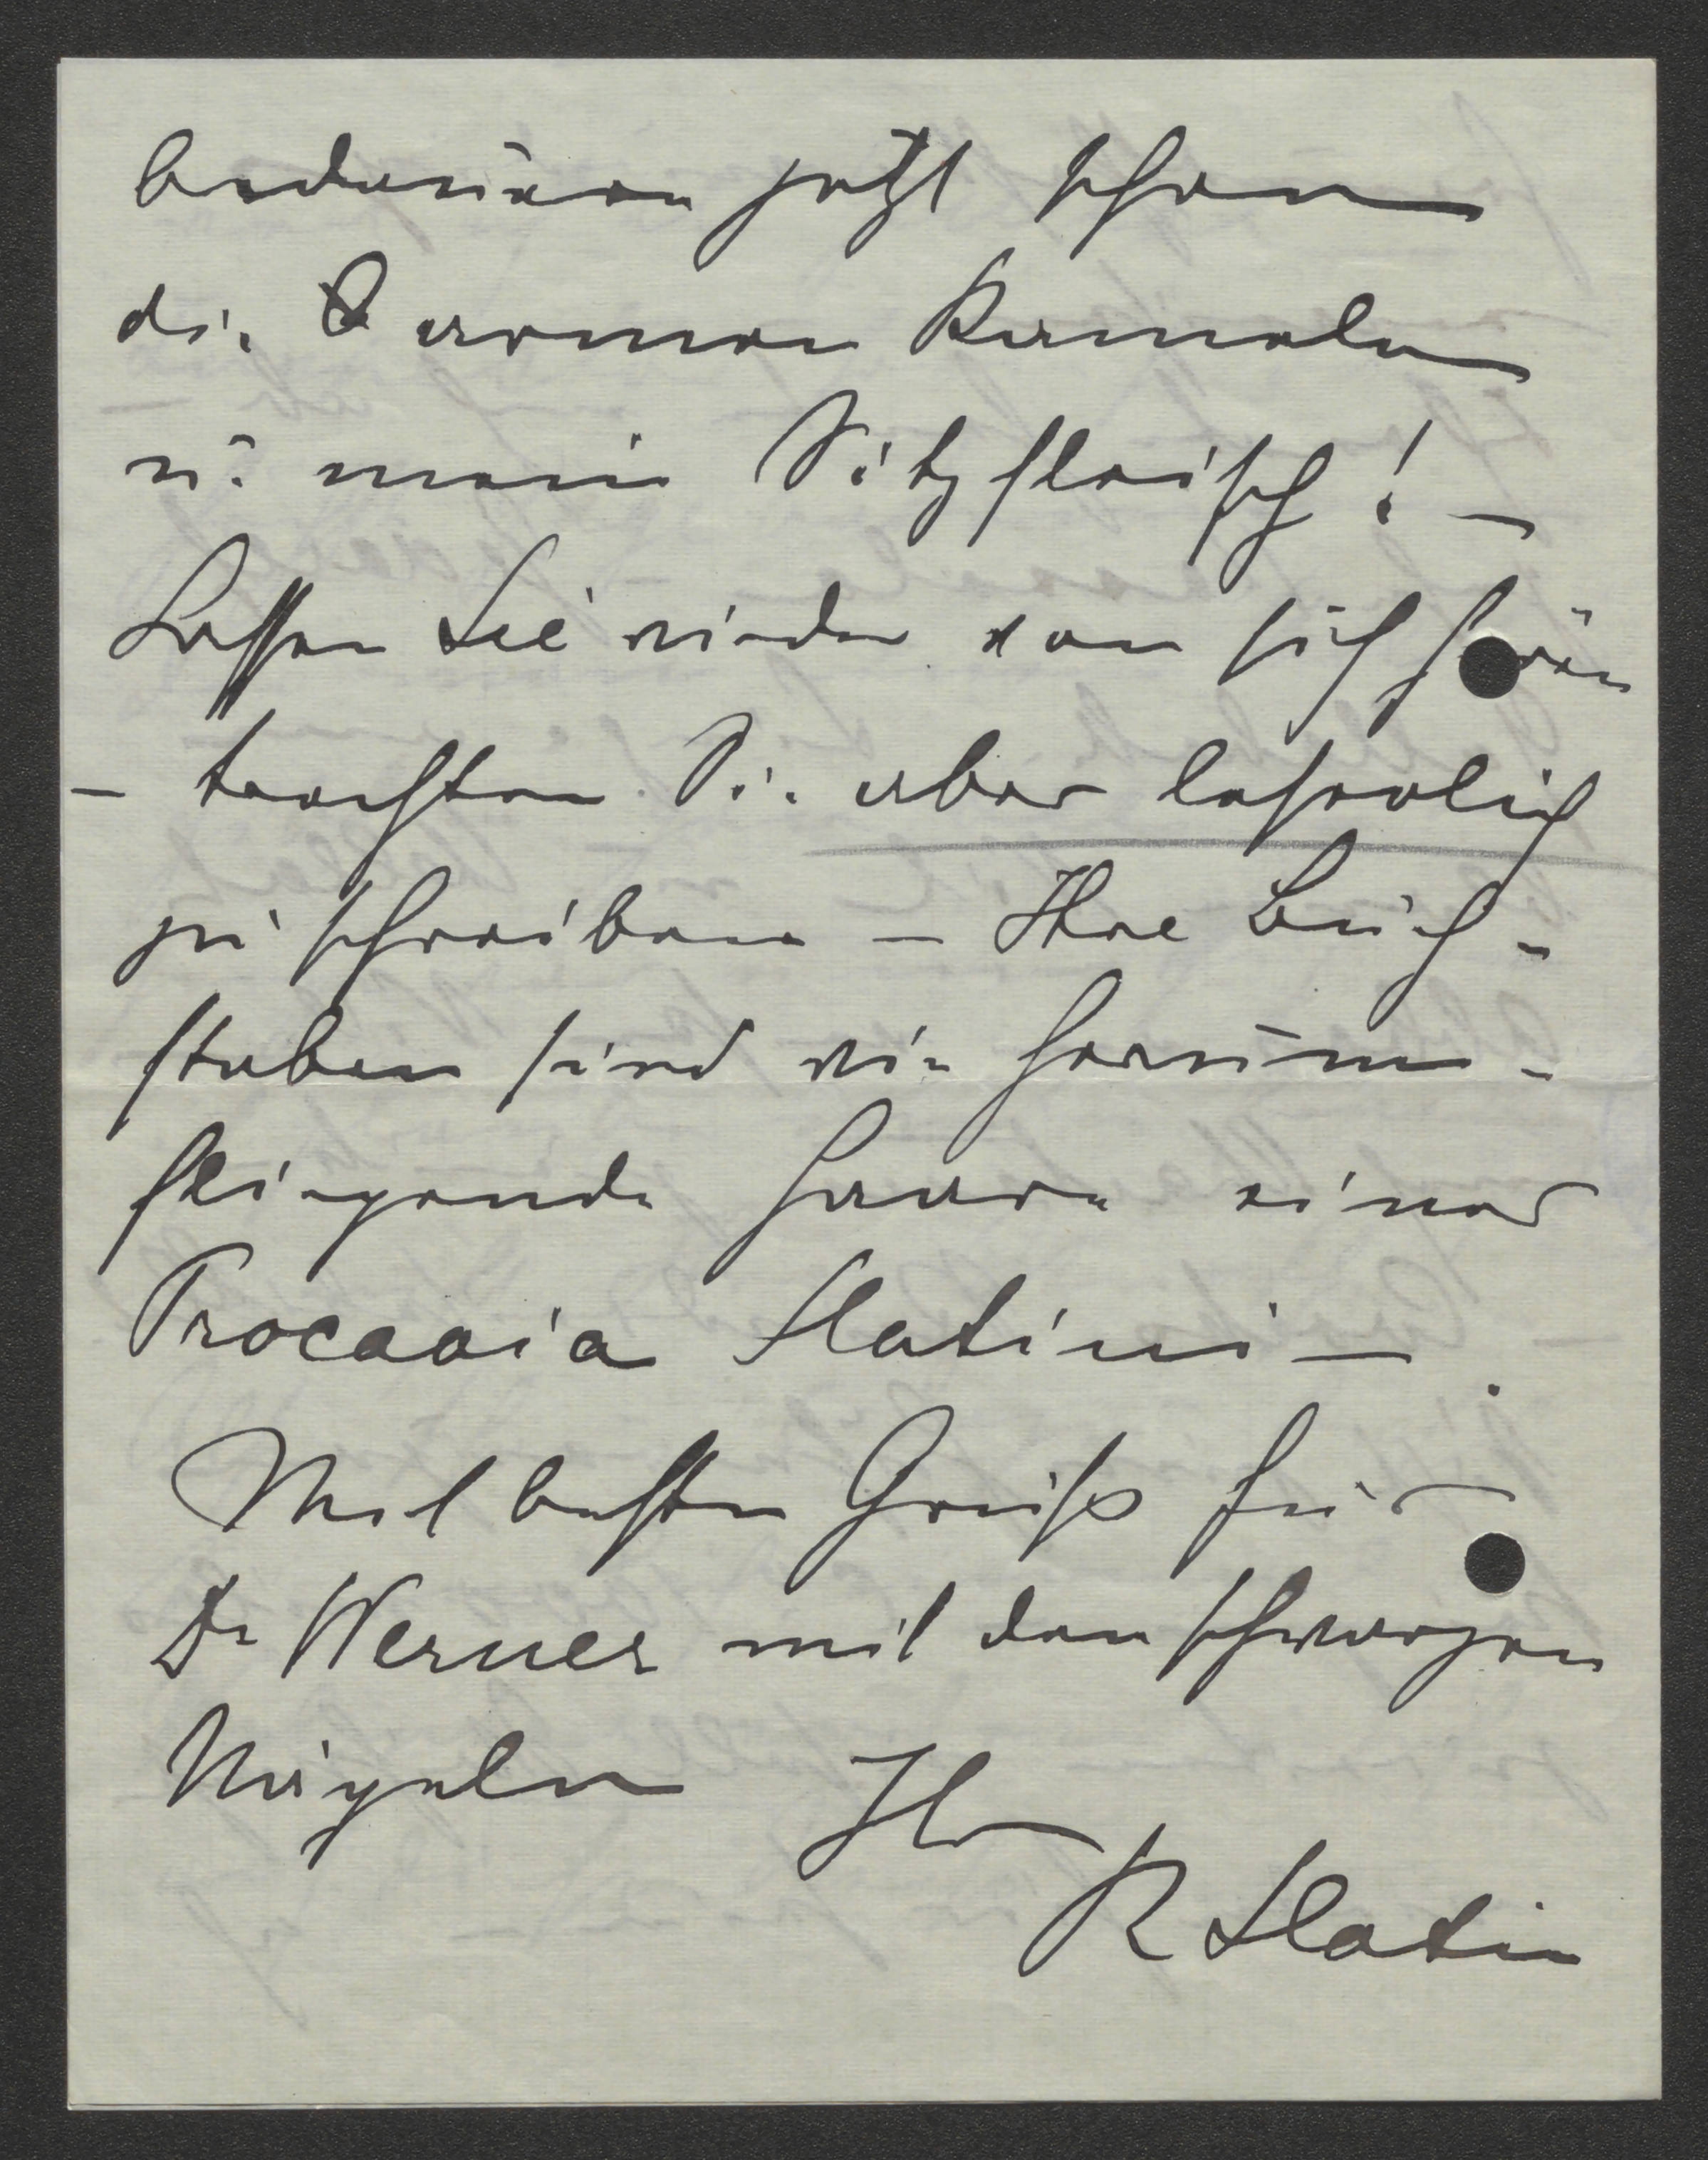 bedauern jetzt schon
die armen Kamele
u. mein Sitzfleisch! –
Lassen Sie wieder von sich hören
– trachten Sie aber leserlich
zu schreiben – Ihre Buch-
staben sind wie herum-
fliegende Haare einer
Procavia Slatini –
Mit besten Gruß für
Dr Werner mit den schwarzen
Nägeln Ihr
R Slatin